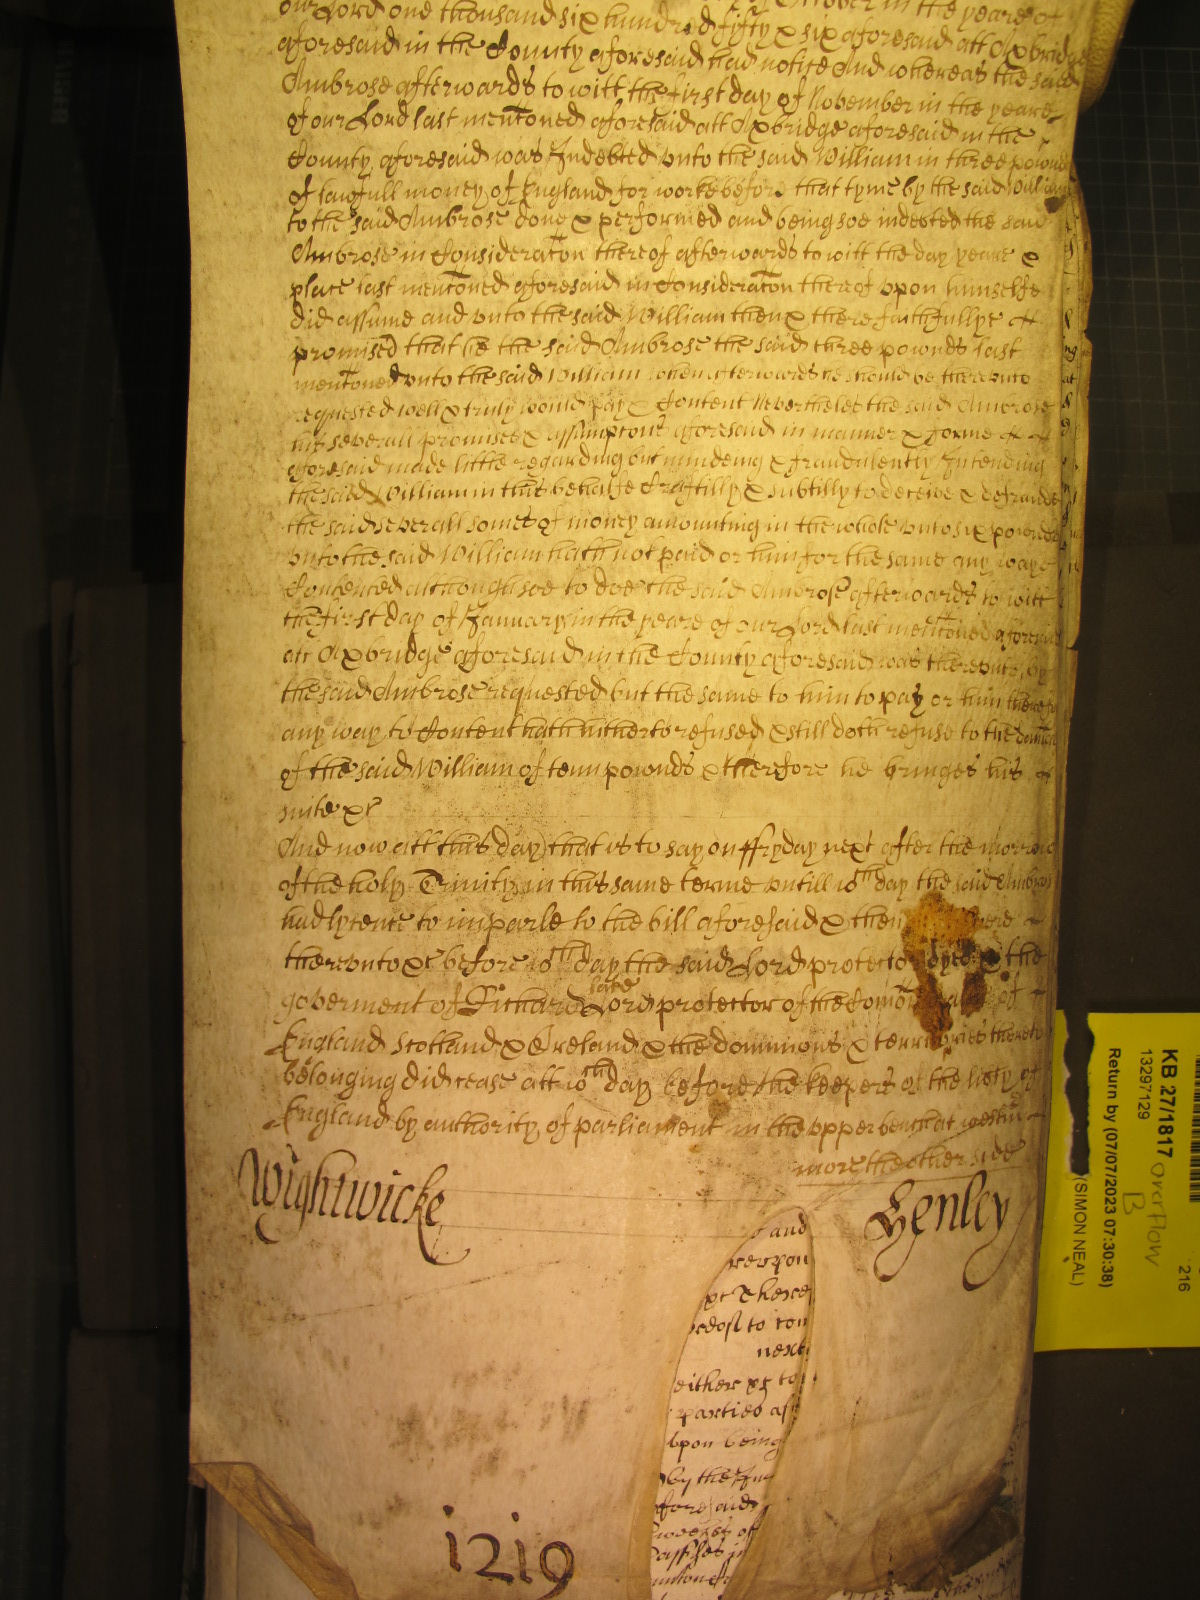 our Lord one thousand six hundred fifty & six aforesaid att Axbridge
aforesaid in the County aforesaid had notice And whereas the said
Ambrose afterwards to witt the first day of November in the yeare
of our Lord last menconed aforesaid att Axbridge aforesaid in the
County aforesaid was Indebted unto the said William in three pownds
of lawfull money of England for worke before that tyme by the said William
to the said Ambrose done & performed and being soe indebted the said
Ambrose in Consideracon thereof afterwards to witt the day yeare &
place last menconed aforesaid in Consideracon thereof upon himselfe
did assume and unto the said William then & there faithfullye
promised that he the said Ambrose the said three pownds last
menconed unto the said William when afterwards he should be thereunto
requested well & truly would pay & Content Neverthelesse the said Ambrose
his severall promises & assumptons aforesaid in manner & forme
aforesaid made little regarding but mindeing & fraudulently Intending
the said William in this behalfe Craftilly & subtilly to deceive & defraude
the said severall somes of money amounting in the whole unto six pownds
unto the said William hath not paid or him for the same any waye
Contented although soe to doe the said Ambrose afterwards to witt
the first day of January in the yeare of our Lord last menconed aforesaid
att Axbridge aforesaid in the County aforesaid was thereunto by
the said Ambrose requested but the same to him to pay or him thereof
any way to Content hath hitherto refused & still doth refuse to the
of the said William of tenn pownds & therefore he bringes his
suite &c
And now att this day that is to say on ffryday next after the morrow
of the holy Trinity in this same terme untill wch day the said Ambrose
had lycence to imparle to the bill aforesaid & then
thereunto &c before wch day the said Lord protector dyed & the
goverment of Richard late Lord protector of the
England Scotland & Ireland & the dominions & territories thereto
belonging did cease att wch day before the keepers of the libty of
England by authority of parliament in the upper bench at westm
more the other side
Wightwicke
Henley
and
&c There
to con
next
either
to
parties
upon being
by the
aforesaid
of
1219
KB 27/1817 overflow
B
13297129
Return by (07/07/2023 07:30:38)
(SIMON NEAL)
216